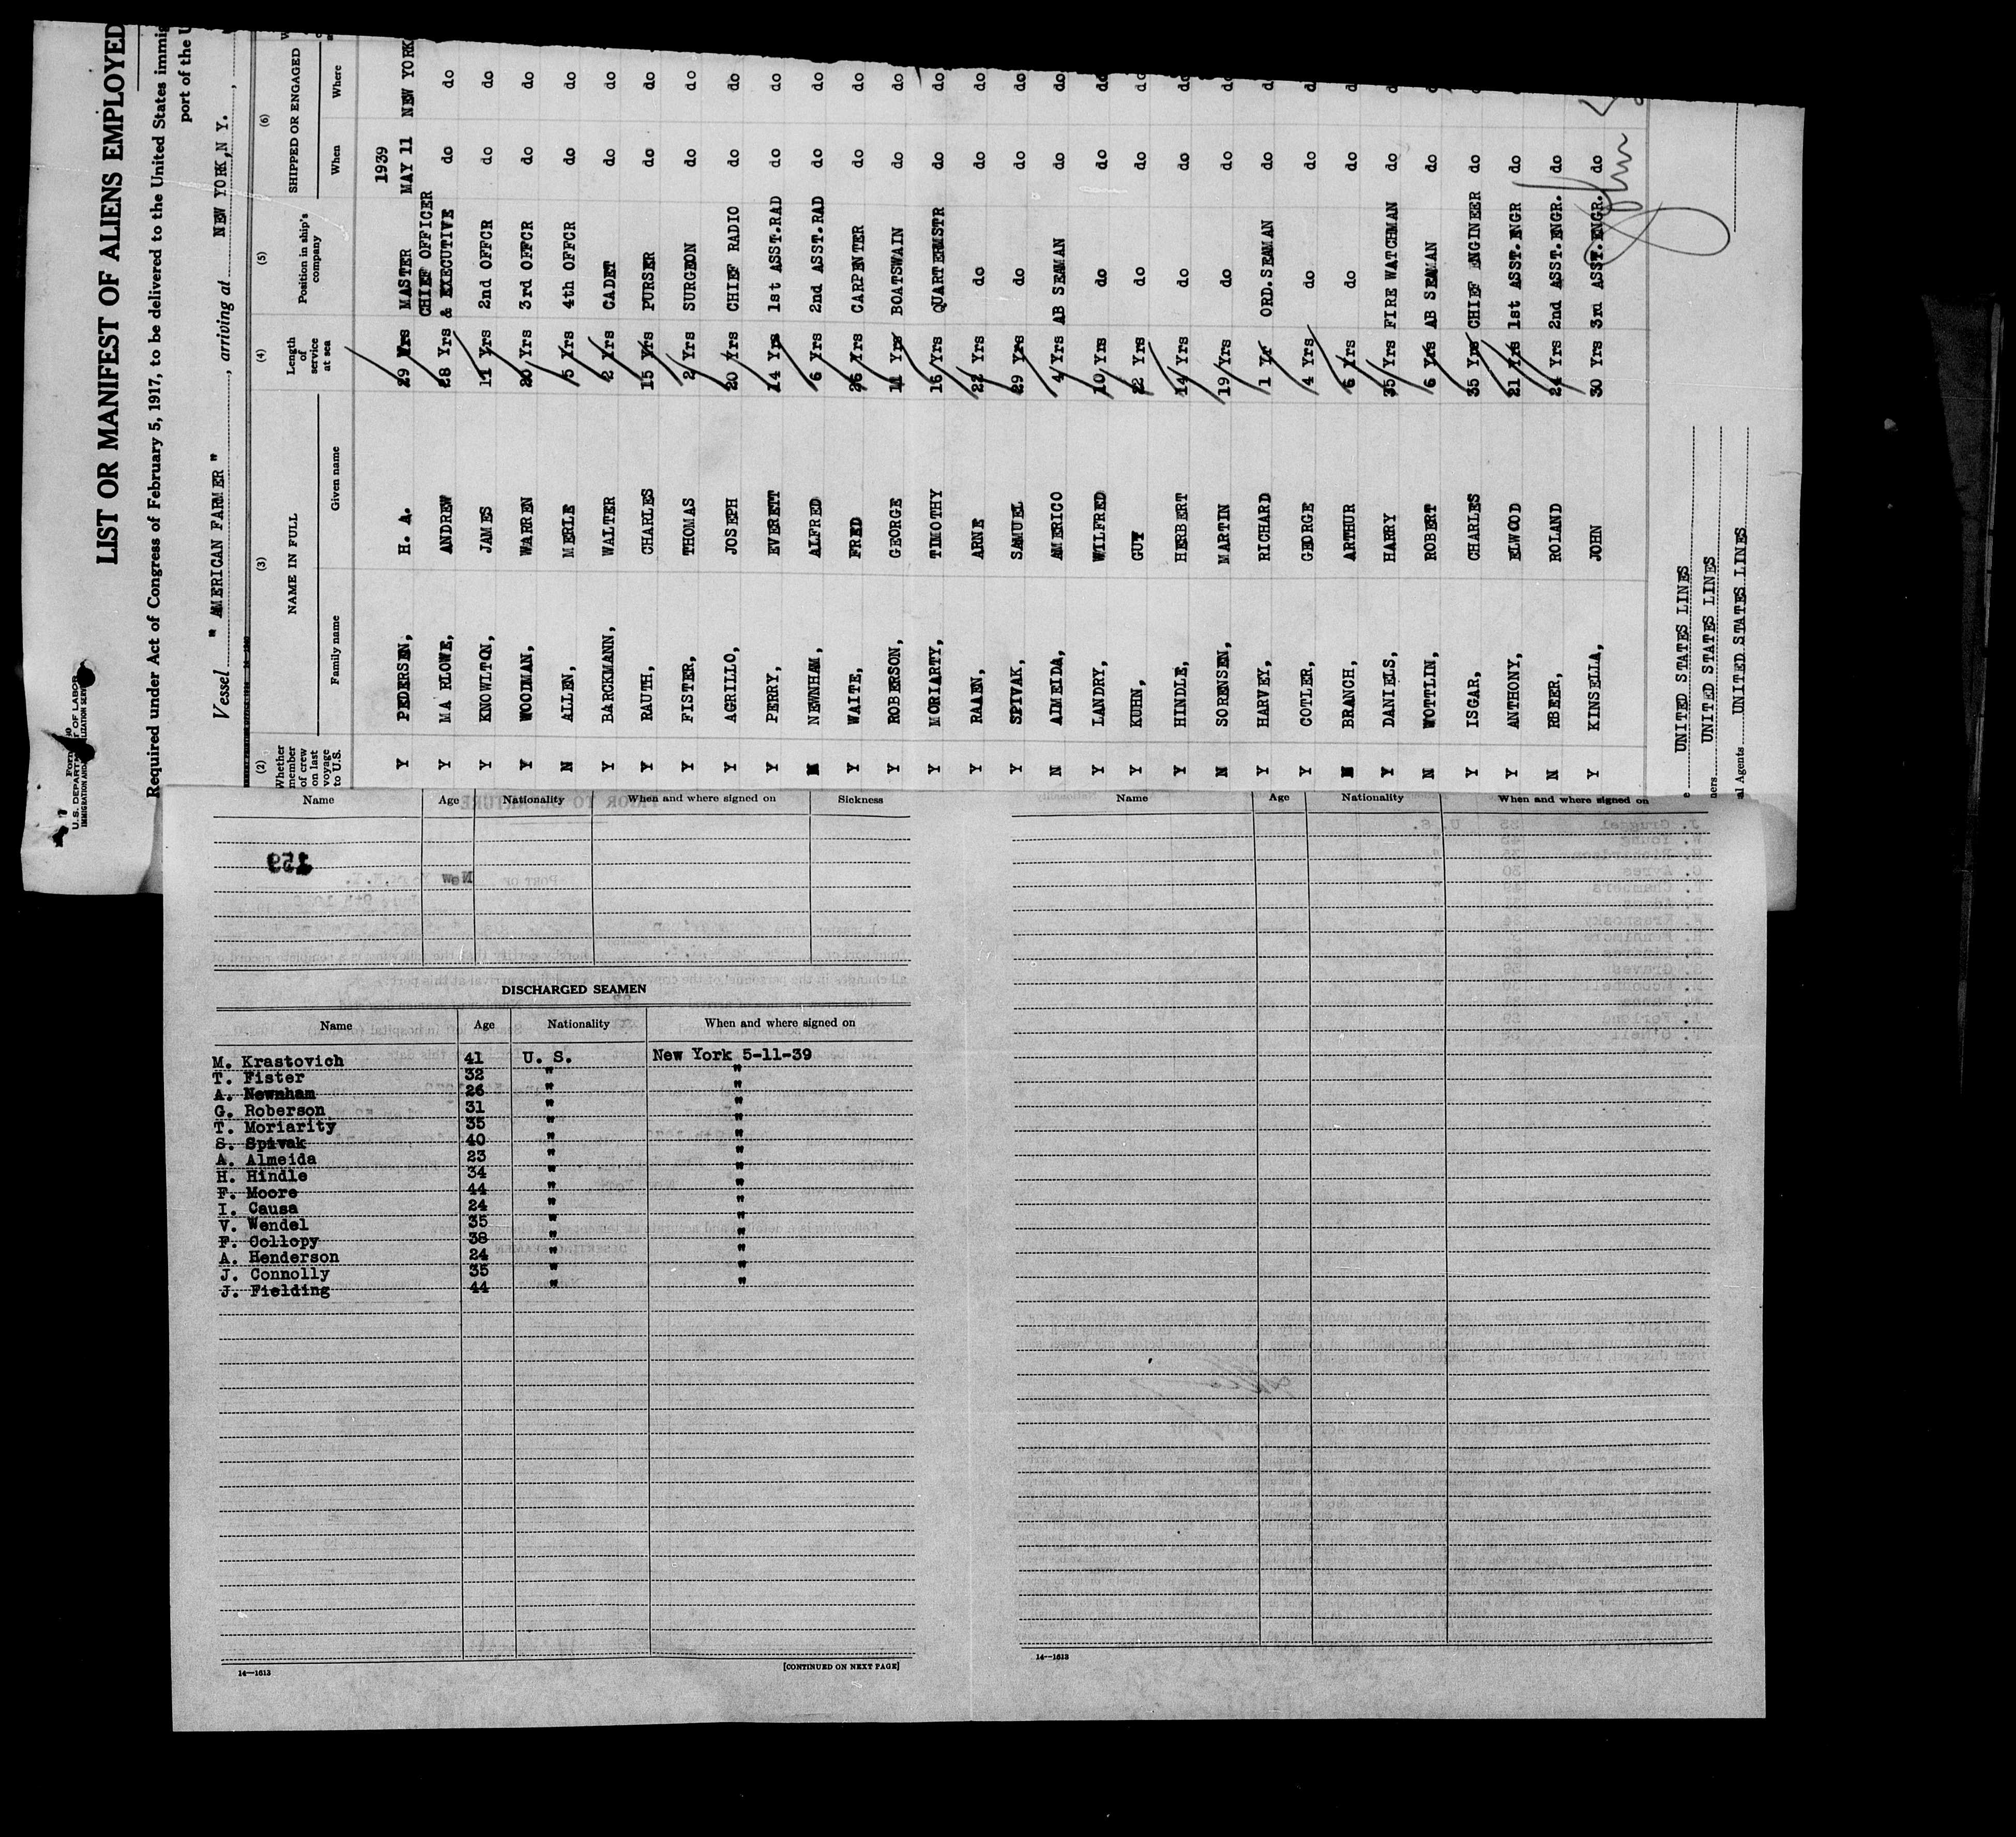 U.S. DEPARTMENT OF LABOR
LIST OR MANIFEST OF ALIENS EMPLOYED
Required under Act of Congress of February 5, 1917, to be delivered to the United States
port of the
Vessel " AMERICAN FARMER ", arriving at NEW YORK, N Y.,
(2) (3) (4) (5) (6)
Whether member of crew on last voyage to U.S. NAME IN FULL Length of service at sea Position in ship's company SHIPPED OR ENGAGED
Family name Given name When Where
1939
Y PEDERSEN, H. A. 29 Yrs MASTER MAY 11 NEW YORK
CHIEF OFFICER
Y MA RLOWE, ANDREW 28 Yrs & EXECUTIVE do do
Y KNOWLTON, JAMES 11 Yrs 2nd OFFCR do do
Y WOODMAN, WARREN 20 Yrs 3rd OFFCR do do
N ALLEN, MERLE 5 Yrs 4th OFFCR do do
Y BARCKMANN, WALTER 2 Yrs CADET do do
Y RAUTH, CHARLES 15 Yrs PURSER do do
Y FISTER, THOMAS 2 Yrs SURGEON do do
Y AGRILLO, JOSEPH 20 Yrs CHIEF RADIO do do
Y PERRY, EVERETT 14 Yrs 1st ASST.RAD do do
N NEWNHAM, ALFRED 6 Yrs 2nd ASST.RAD do do
Y WAITE, FRED 26 Yrs CARPENTER do do
Y ROBERSON, GEORGE 11 Yrs BOATSWAIN do do
Y MORIARTY, TIMOTHY 16 Yrs QUARTERMSTR do do
Y RAAEN, ARNE 22 Yrs do do do
Y SPIVAK, SAMUEL 29 Yrs do do do
N ALMEIDA, AMERICO 4 Yrs AB SEAMAN do do
Y LANDRY, WILFRED 10 Yrs do do do
Y KUHN, GUY 22 Yrs do do do
Y HINDLE, HERBERT 14 Yrs do do do
N SORENSEN, MARTIN 19 Yrs do do do
Y HARVEY, RICHARD 1 Yr ORD.SEAMAN do do
Y COTLER, GEORGE 4 Yrs do do do
N BRANCH, ARTHUR 6 Yrs do do do
Y DANIELS, HARRY 35 Yrs FIRE WATCHMAN do do
N WOTTLIN, ROBERT 6 Yrs AB SEAMAN do do
Y ISGAR, CHARLES 35 Yrs CHIEF ENGINEER do
Y ANTHONY, ELWOOD 21 Yrs 1st ASST.ENGR do
N BEER, ROLAND 24 Yrs 2nd ASST.ENGR. do
Y KINSELLA, JOHN 30 Yrs 3rd ASST.ENGR. do
UNITED STATES LINES
UNITED STATES LINES
al Agents UNITED STATES LINES
Name Age Nationality When and where signed on Sickness
DISCHARGED SEAMEN
Name Age Nationality When and where signed on
M. Krastovich 41 U. S. New York 5-11-39
T. Fister 32 " "
A. Newnham 26 " "
G. Roberson 31 " "
T. Moriarity 35 " "
S. Spivak 40 " "
A. Almeida 23 " "
H. Hindle 34 " "
F. Moore 44 " "
I. Causa 24 " "
V. Wendel 35 " "
F. Collopy 38 " "
A. Henderson 24 " "
J. Connolly 35 " "
J. Fielding 44 " "
14—1613 [CONTINUED ON NEXT PAGE]
Name Age Nationality When and where signed on
14—1613